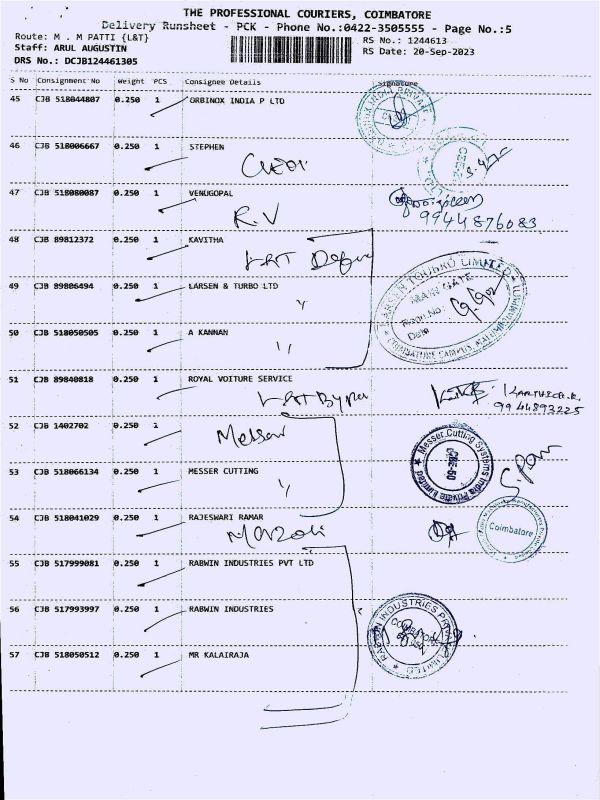 THE PROFESSIONAL COURIERS, COIMBATORE
Delivery Runsheet - PCK - Phone No.:0422-3505555 - Page No.:5
Route: M . M PATTI {L&T}
RS No.: 1244613
Staff: ARUL AUGUSTIN
RS Date: 20-Sep-2023
DRS No.: DCJB124461305
S No Consignment No Weight PCS Consignee Details Signature
45 CJB 518044807 0.250 1 ORBINOX INDIA P LTD
46 CJB 518006667 0.250 1 STEPHEN
47 CJB 518080087 0.250 1 VENUGOPAL
R.V
9944876083
48 CJB 89812372 0.250 1 KAVITHA
49 CJB 89806494 0.250 1 LARSEN & TURBO LTD
LARSEN TOUBRO LIMITED
MAIN GATE
Date
50 CJB 518050505 0.250 1 A KANNAN
51 CJB 89840818 0.250 1 ROYAL VOITURE SERVICE
KARTHICK.K
9944893225
52 CJB 1402702 0.250 1
Messer
Messer Cutting Systems India Private Limited
CBE-50
53 CJB 518066134 0.250 1 MESSER CUTTING
54 CJB 518041029 0.250 1 RAJESWARI RAMAR
Coimbatore
55 CJB 517999081 0.250 1 RABWIN INDUSTRIES PVT LTD
56 CJB 517993997 0.250 1 RABWIN INDUSTRIES
RABWIN INDUSTRIES PRIVATE LIMITED
57 CJB 518050512 0.250 1 MR KALAIRAJA